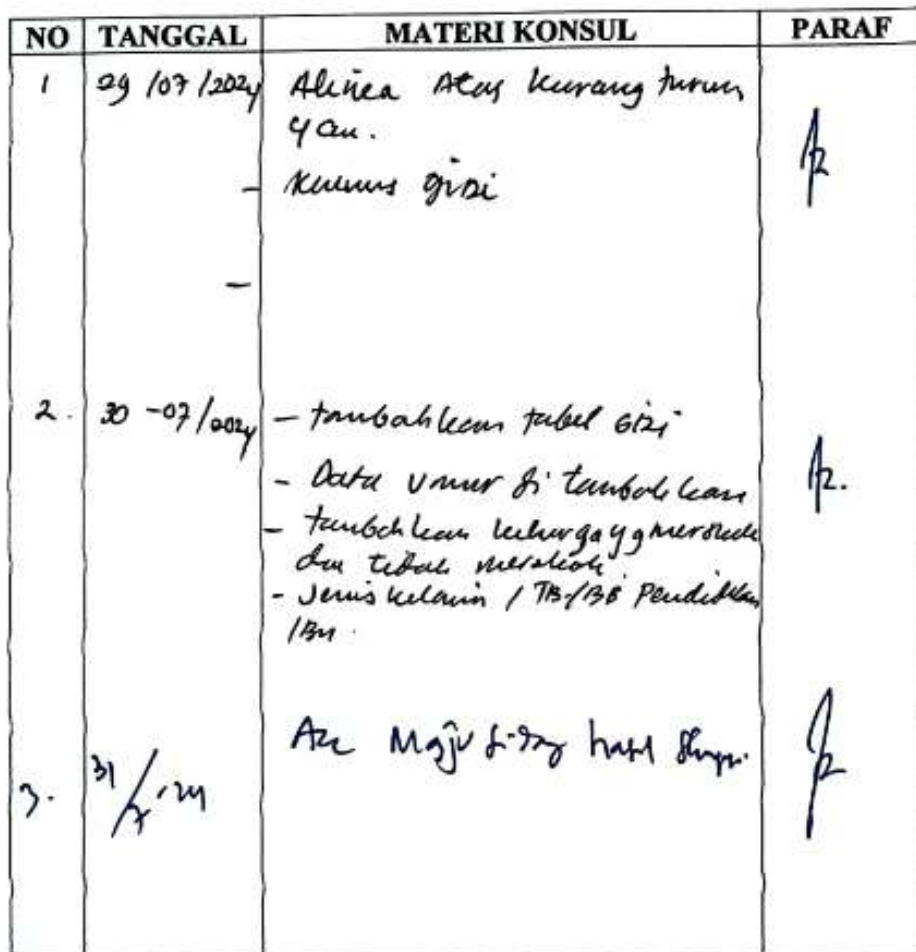 NO TANGGAL MATERI KONSUL PARAF
1 29/07/2024 Alinea Atas kurang turun
yau.
- gizi
-
2. 30-07/2024 - tambahkan tabel Gizi
- Data umur di tambahkan
- tambahkan keluarga yg merokok
dan tidak merokok
- Jenis kelamin / TB/BB Pendidikan
Ibu.
3. 31/7-'24 Acc Maju sidang hasil Skripsi.